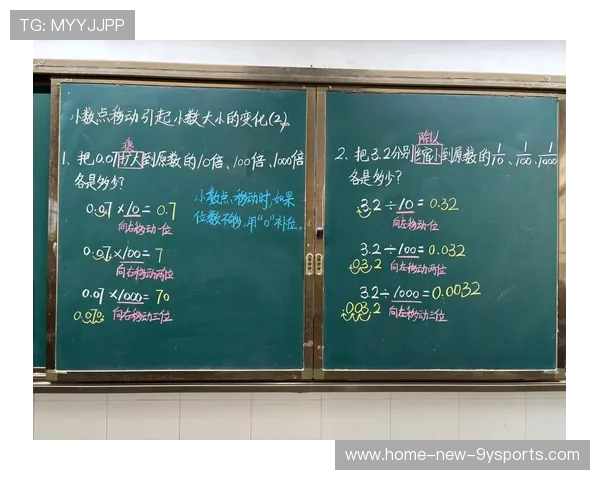 TG: MYYJJPP
小数点移动引起小数大小的变化(2)
乘
1. 把0.07扩大到原数的10倍、100倍、1000倍
各是多少?
0.07×10=0.7
向右移动一位
0.07×100=7
向右移动两位
0.07×1000=70
0.070
向右移动三位
小数点移动时,如果
位数不够,用"0"补位。
除以
2. 把3.2分别缩小到原数的1/10、1/100、1/1000
各是多少?
3.2÷10=0.32
向左移动一位
3.2÷100=0.032
03.2
向左移动两位
3.2÷1000=0.0032
003.2
向左移动三位
www-home-new-9ysports.com